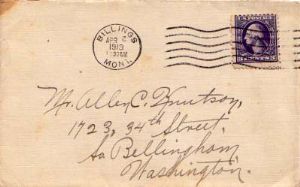 BILLINGS
APR 2
1919
MONT.
3 CENTS 3
Mr. Allen C. Knutson,
1723, 34th Street.
So Bellingham
Washington.